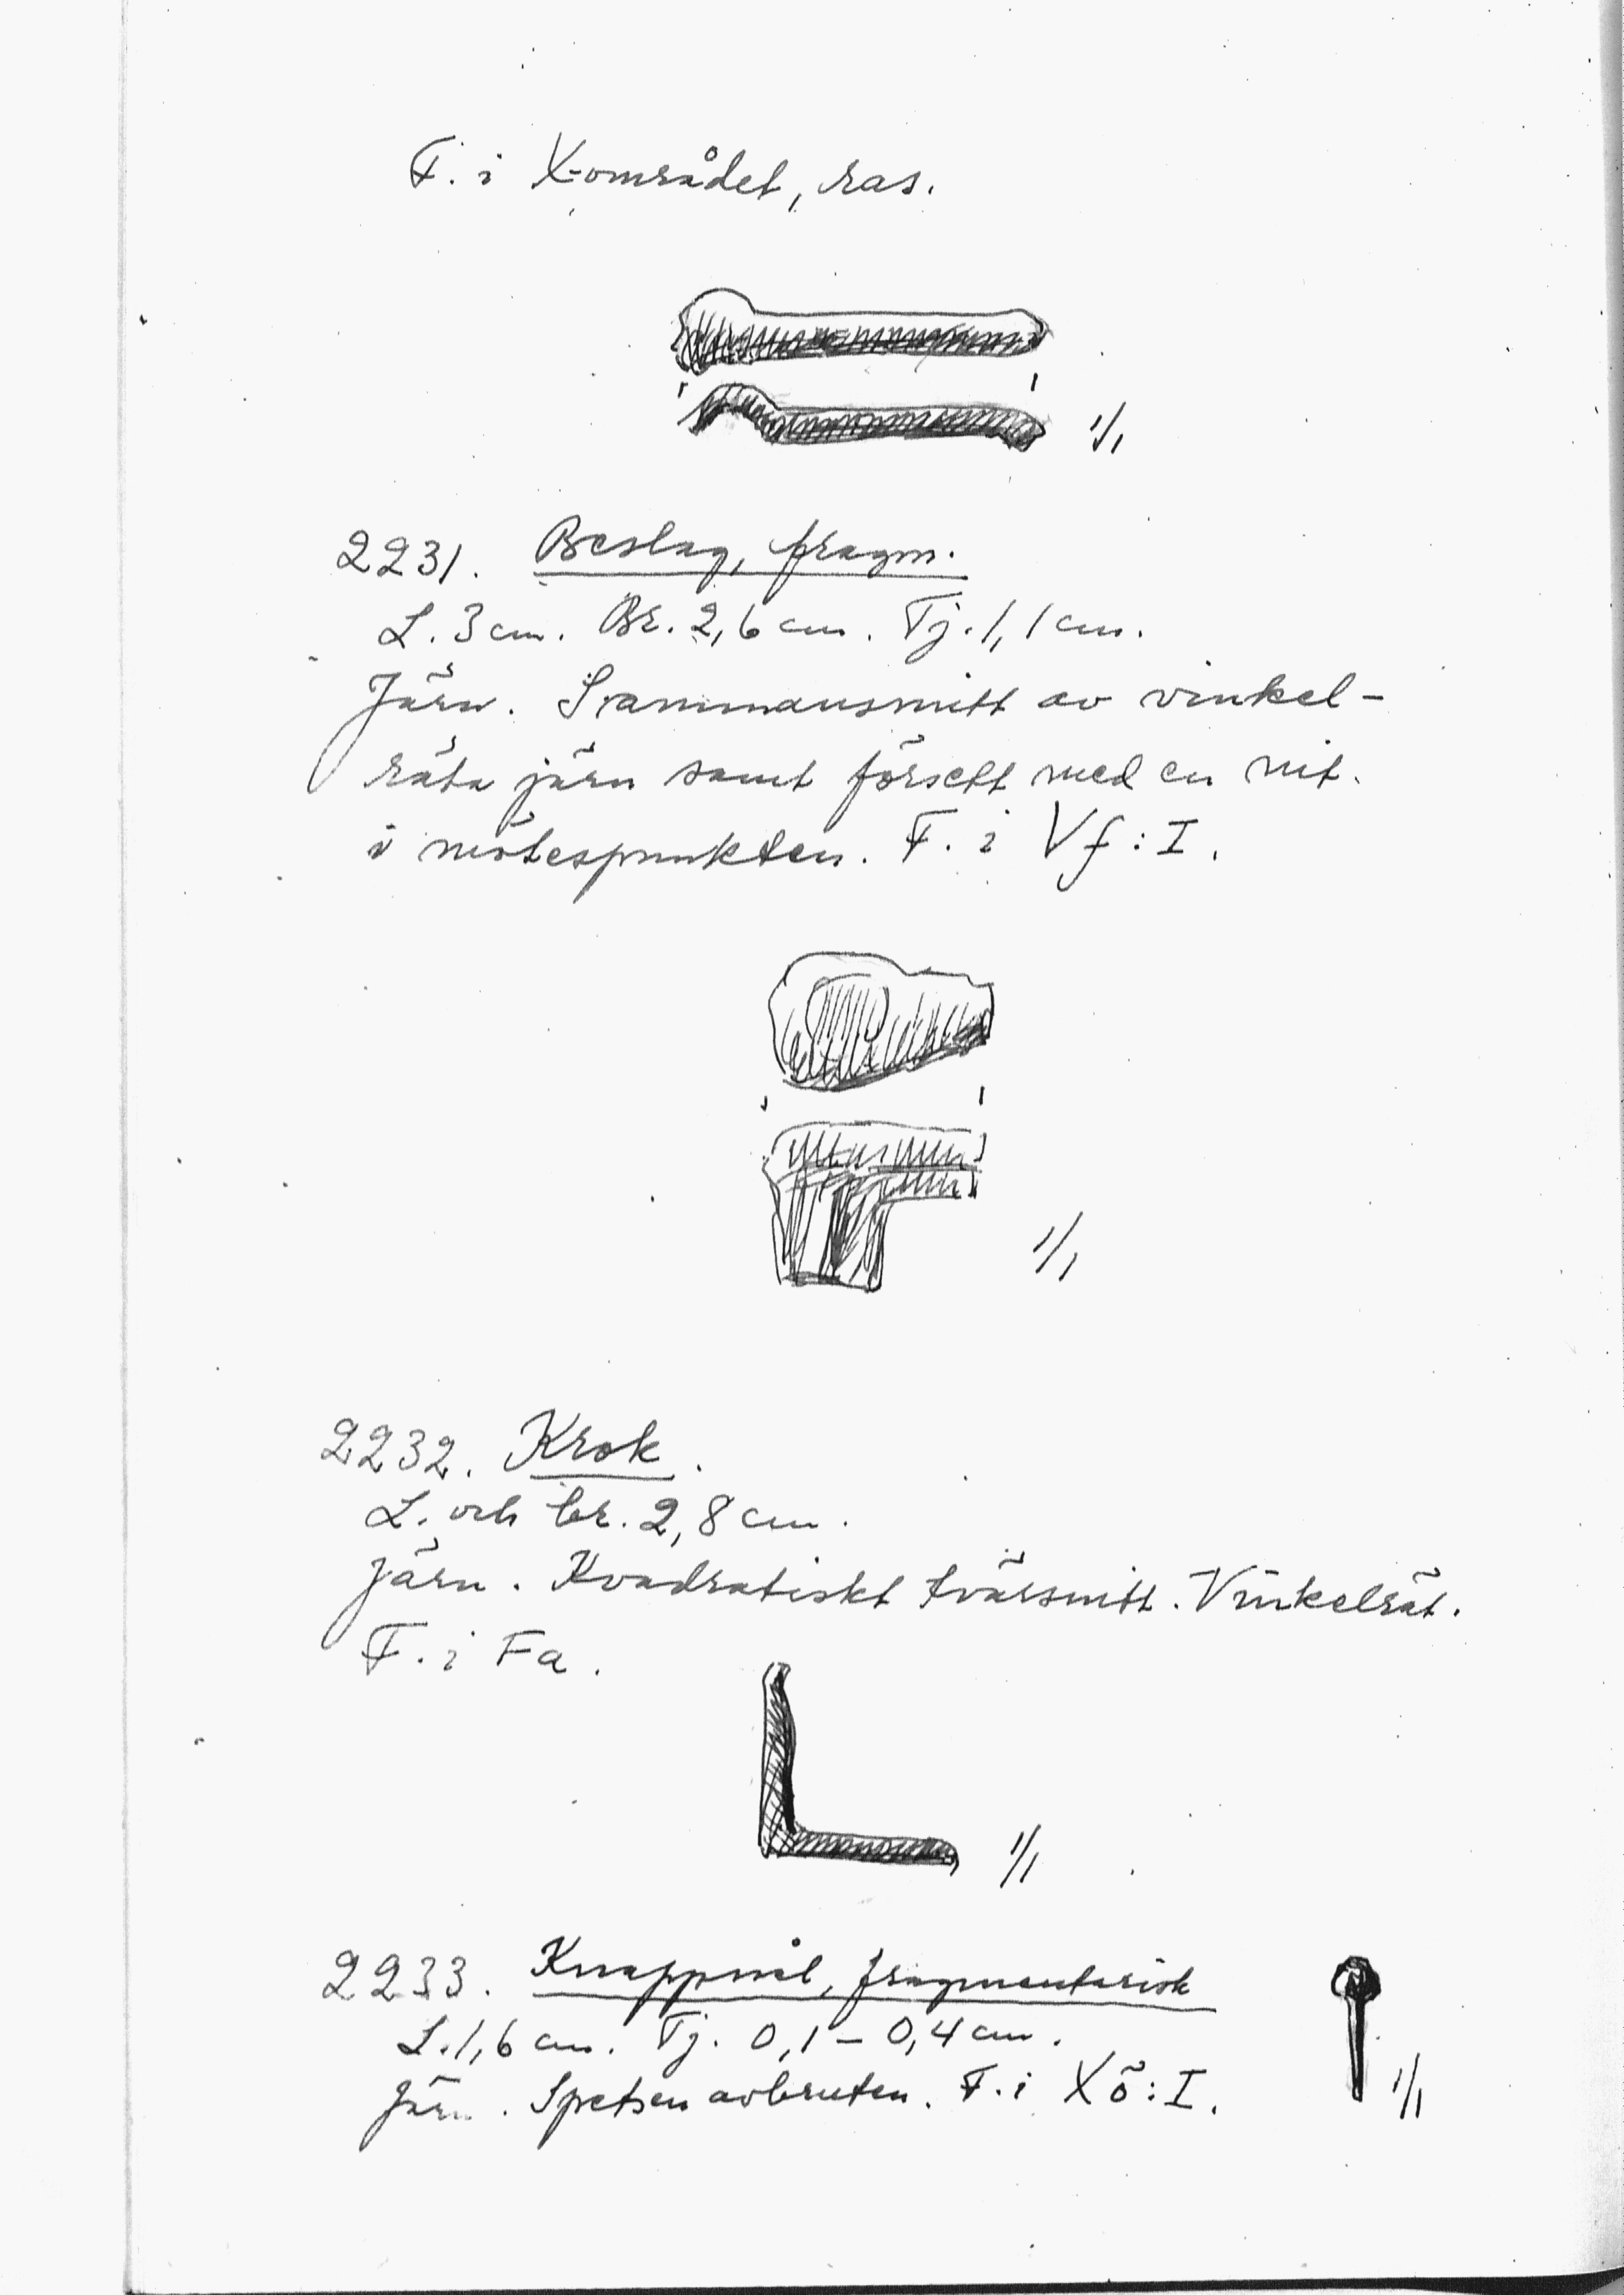 F. i X-området, ras.
1/1
2231. Beslag, fragm.
L. 3 cm. Br. 2,6 cm. Tj. 1,1 cm.
Järn. av vinkel-
räta järn samt försett med en nit
i mötespunkten. F. i Vf: I.
1/1
2232. Krok.
L. och br. 2,8 cm.
Järn. Kvadratiskt tvärsnitt. Vinkelrät.
F. i Fa.
1/1
2233. Knappnål, fragmentarisk
L. 1,6 cm. Tj. 0,1 – 0,4 cm.
Järn. Spetsen avbruten. F. i Xö: I.
1/1